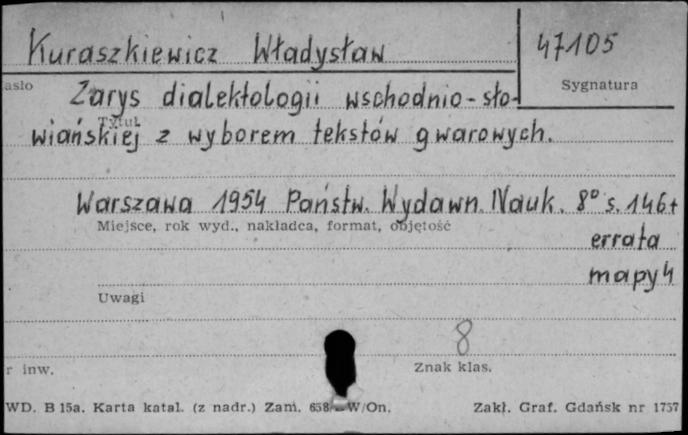 Kuraszkiewicz Władysław
47105
asło
Sygnatura
Zarys dialektologii wschodnio-sło-
Tytuł
wiańskiej z wyborem tekstów gwarowych.
Warszawa 1954 Państw. Wydawn. Nauk. 8° s. 146+
Miejsce, rok wyd., nakładca, format, objętość
errata
mapy 4
Uwagi
8
r inw.
Znak klas.
WD. B 15a. Karta katal. (z nadr.) Zam. 658 W/On.
Zakł. Graf. Gdańsk nr 1757